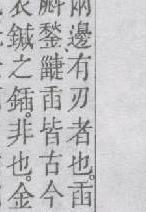 兩邊有刃者也。臿
鍫疀臿皆古今
衣鍼之鍤。非也。金